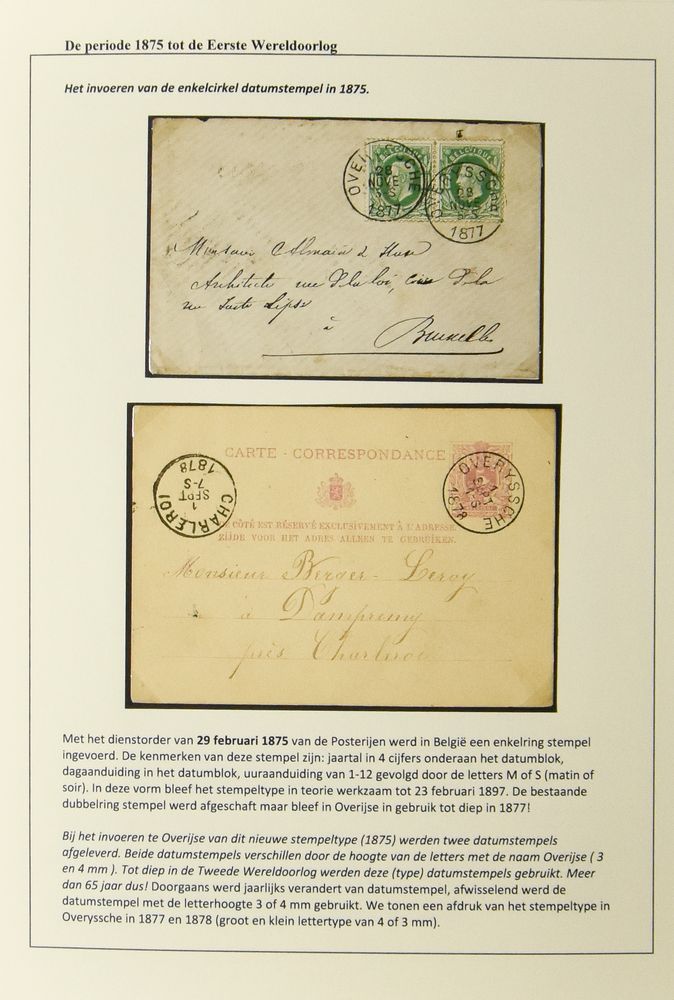 De periode 1875 tot de Eerste Wereldoorlog
Het invoeren van de enkelcirkel datumstempel in 1875.
BELGIQUE
OVERYSSCHE
28
NOVE
1877
OVERYSSCHE
28
NOVE
1877
Architecte rue
rue Juste Lipse
à
Bruxelles
CARTE - CORRESPONDANCE
CHARLEROI
1
SEPT
7-S
1878
OVERYSSCHE
1878
CÔTÉ EST RÉSERVÉ EXCLUSIVEMENT À L'ADRESSE.
ZIJDE VOOR HET ADRES ALLEEN TE GEBRUIKEN.
Monsieur Berger-Leroy
à Dampremy
près Charleroi
Met het dienstorder van 29 februari 1875 van de Posterijen werd in België een enkelring stempel
ingevoerd. De kenmerken van deze stempel zijn: jaartal in 4 cijfers onderaan het datumblok,
dagaanduiding in het datumblok, uuraanduiding van 1-12 gevolgd door de letters M of S (matin of
soir). In deze vorm bleef het stempeltype in teorie werkzaam tot 23 februari 1897. De bestaande
dubbelring stempel werd afgeschaft maar bleef in Overijse in gebruik tot diep in 1877!
Bij het invoeren te Overijse van dit nieuwe stempeltype (1875) werden twee datumstempels
afgeleverd. Beide datumstempels verschillen door de hoogte van de letters met de naam Overijse ( 3
en 4 mm ). Tot diep in de Tweede Wereldoorlog werden deze (type) datumstempels gebruikt. Meer
dan 65 jaar dus! Doorgaans werd jaarlijks verandert van datumstempel, afwisselend werd de
datumstempel met de letterhoogte 3 of 4 mm gebruikt. We tonen een afdruk van het stempeltype in
Overyssche in 1877 en 1878 (groot en klein lettertype van 4 of 3 mm).